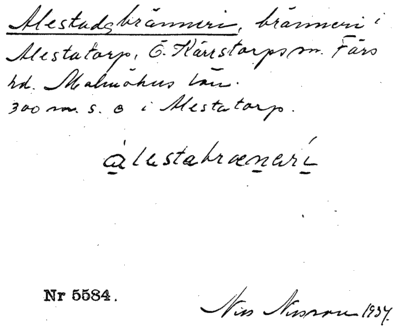 Alestads bränneri, bränneri i
Alestatorp, Ö. Kärrstorps sn. Färs
hd. Malmöhus län.
300 m. s. o i Alestatorp.
àlestabrænərí
Nr 5584.
Nils Nilsson 1934.